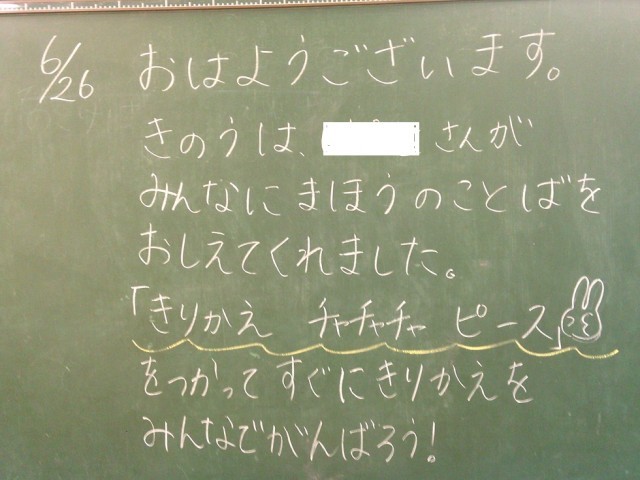 6/26
おはようございます。
きのうは、 さんが
みんなにまほうのことばを
おしえてくれました。
「きりかえ チャチャチャ ピース」
をつかってすぐにきりかえを
みんなでがんばろう!